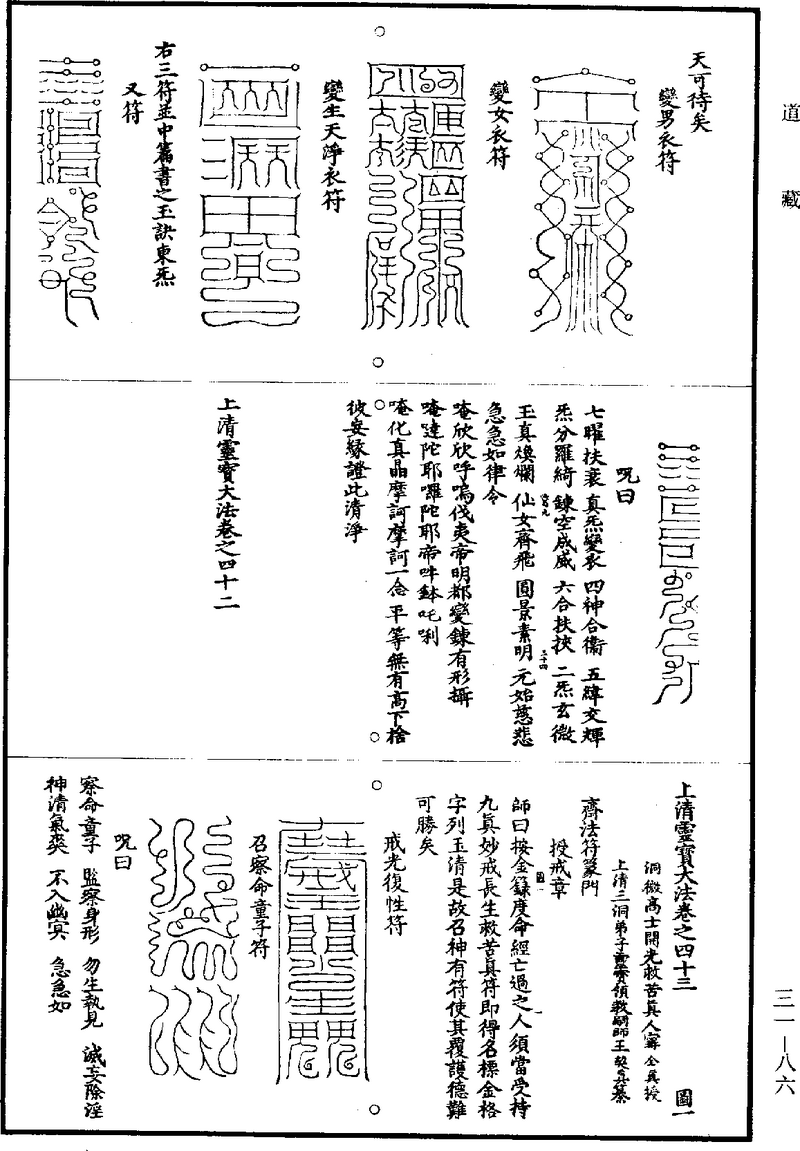 道藏
天可待矣
變男衣符
變女衣符
變生天淨衣符
右三符並中篇書之玉訣東炁
又符
咒曰
七曜扶衰 真炁變衣 四神合衛 五緯交輝
炁分羅綺 鍊空成威 六合扶挾 二炁玄微
玉真煥爛 仙女齊飛 圓景素明 元始慈悲
急急如律令
唵欣欣呼嗚伐夷帝明都變鍊有形攝
唵達陀耶囉陀耶帝吽鉢吒唎
唵化真晶摩訶摩訶一念平等無有高下捨
彼妄緣證此清淨
上清靈寶大法卷之四十二
上清靈寶大法卷之四十三 圖一
洞微高士開光救苦真人甯全真授
上清三洞弟子靈寶領教嗣師王契真纂
齋法符篆門
授戒章
師曰按金籙度命經亡過之人須當受持
九真妙戒長生救苦真符即得名標金格
字列玉清是故召神有符使其覆護德難
可勝矣
戒光復性符
召察命童子符
咒曰
察命童子 監察身形 勿生執見 滅妄除淫
神清氣爽 不入幽冥 急急如
三一—八六